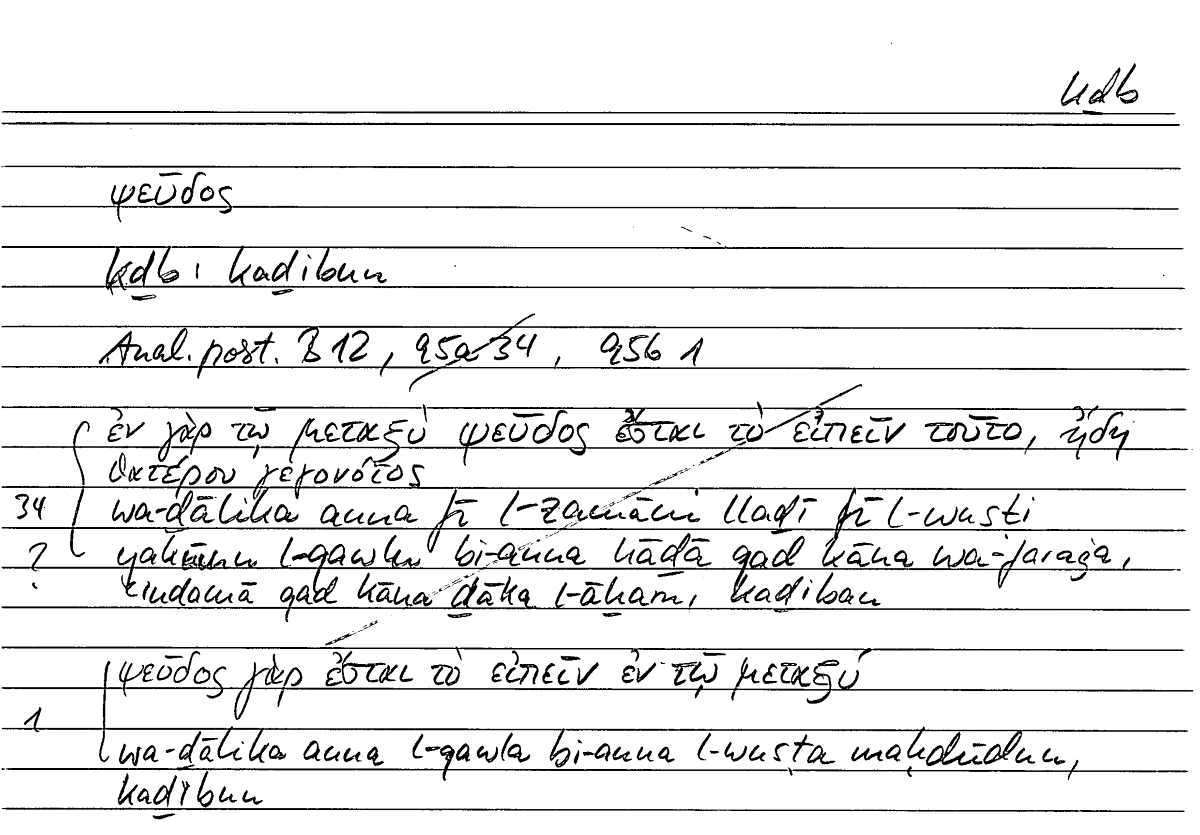 kḏb
ψεῦδος
kḏb: kaḏibun
Anal. post. B 12, 95a 34, 95b 1
ἐν γὰρ τῷ μεταξὺ ψεῦδος ἔσται τὸ εἰπεῖν τοῦτο, ἤδη
θατέρου γεγονότος
34 wa-ḏālika anna fī l-zamāni llaḏī fī l-wusṭi
? yakūnu l-qawlu bi-anna hāḏā qad kāna wa-faraġa,
ʿindamā qad kāna ḏāka l-āḫaru, kaḏiban
ψεῦδος γὰρ ἔσται τὸ εἰπεῖν ἐν τῷ μεταξύ
1
wa-ḏālika anna l-qawla bi-anna l-wusṭa maḥdūdun,
kaḏibun